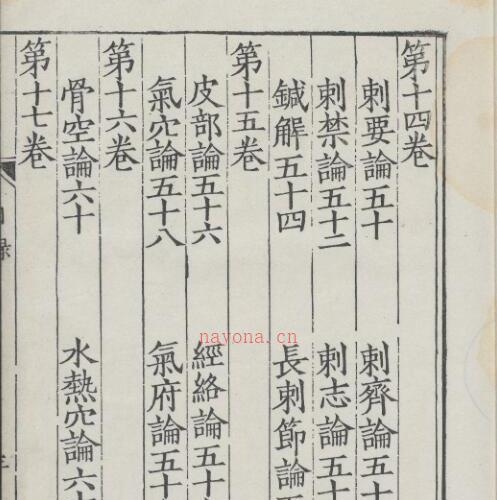 第十四卷
刺要論五十　刺齊論五十
刺禁論五十二　刺志論五十
鍼解五十四　長刺節論五
第十五卷
皮部論五十六　經絡論五十
氣穴論五十八　氣府論五十
第十六卷
骨空論六十　水熱穴論六十
第十七卷
nayona.cn